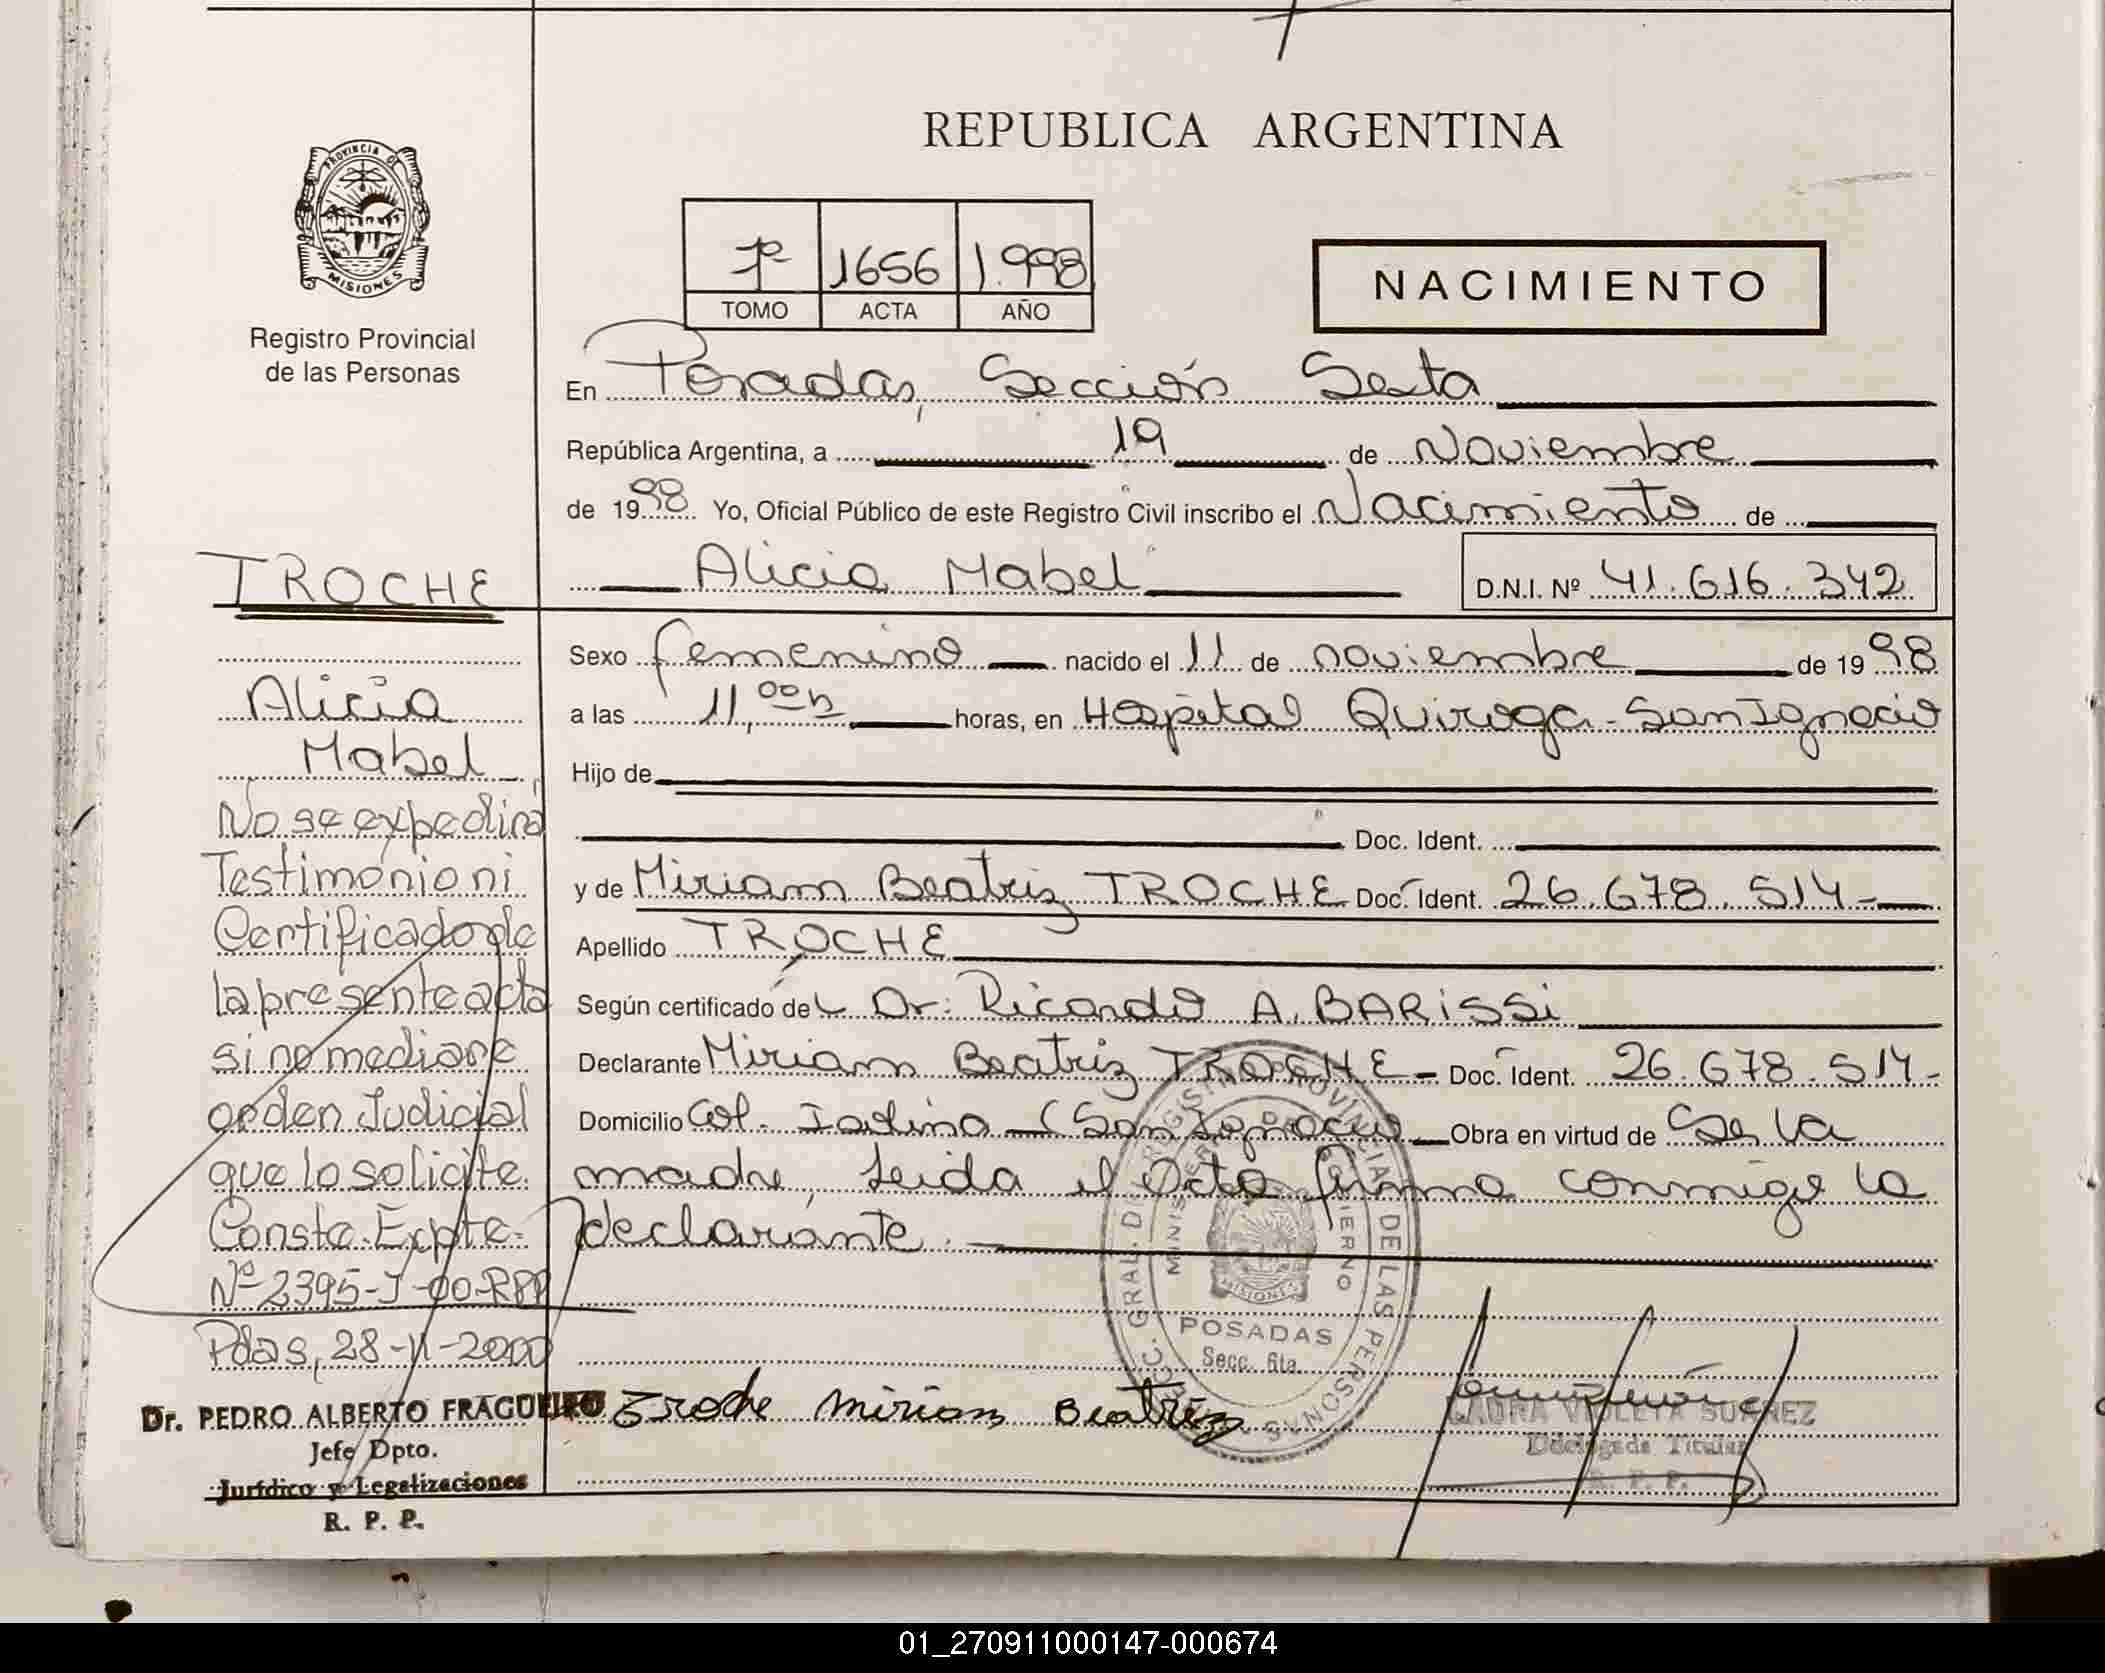 REPUBLICA ARGENTINA
PROVINCIA DE
MISIONES
Registro Provincial
de las Personas
1656 1.998
TOMO ACTA AÑO
NACIMIENTO
En Posadas, Sección Sexta
República Argentina, a 19 de Noviembre
de 1998 Yo, Oficial Público de este Registro Civil inscribo el Nacimiento de
Alicia Mabel D.N.I. Nº 41.616.342
Sexo femenino nacido el 11 de noviembre de 1998
a las 11,00h horas, en Hospital Quiroga - San Ignacio
Hijo de
Doc. Ident.
y de Miriam Beatriz TROCHE Doc. Ident. 26.678.514-
Apellido TROCHE
Según certificado del Dr. Ricardo A. BARiSSi
Declarante Miriam Beatriz TROCHE - Doc. Ident. 26.678.514-
Domicilio Col. (San Ignacio Obra en virtud de Se la
madre, Leida el Acta firma conmigo la
declarante.
Troche Miriam Beatriz
LAURA VIOLETA SUAREZ
Titular
R. P. P.
POSADAS
Secc. 6ta.
MISIONES
TROCHE
Alicia
Mabel
No se expedirá
Testimonio ni
Certificado de
la presente acta
si no mediare
orden Judicial
que lo solicite.
Conste. Expte.
Nº 2395-J-00-RPP
Pdas, 28-11-2000
Dr. PEDRO ALBERTO FRAGUEIRO
Jefe Dpto.
Jurídico y Legalizaciones
R. P. P.
01_270911000147-000674